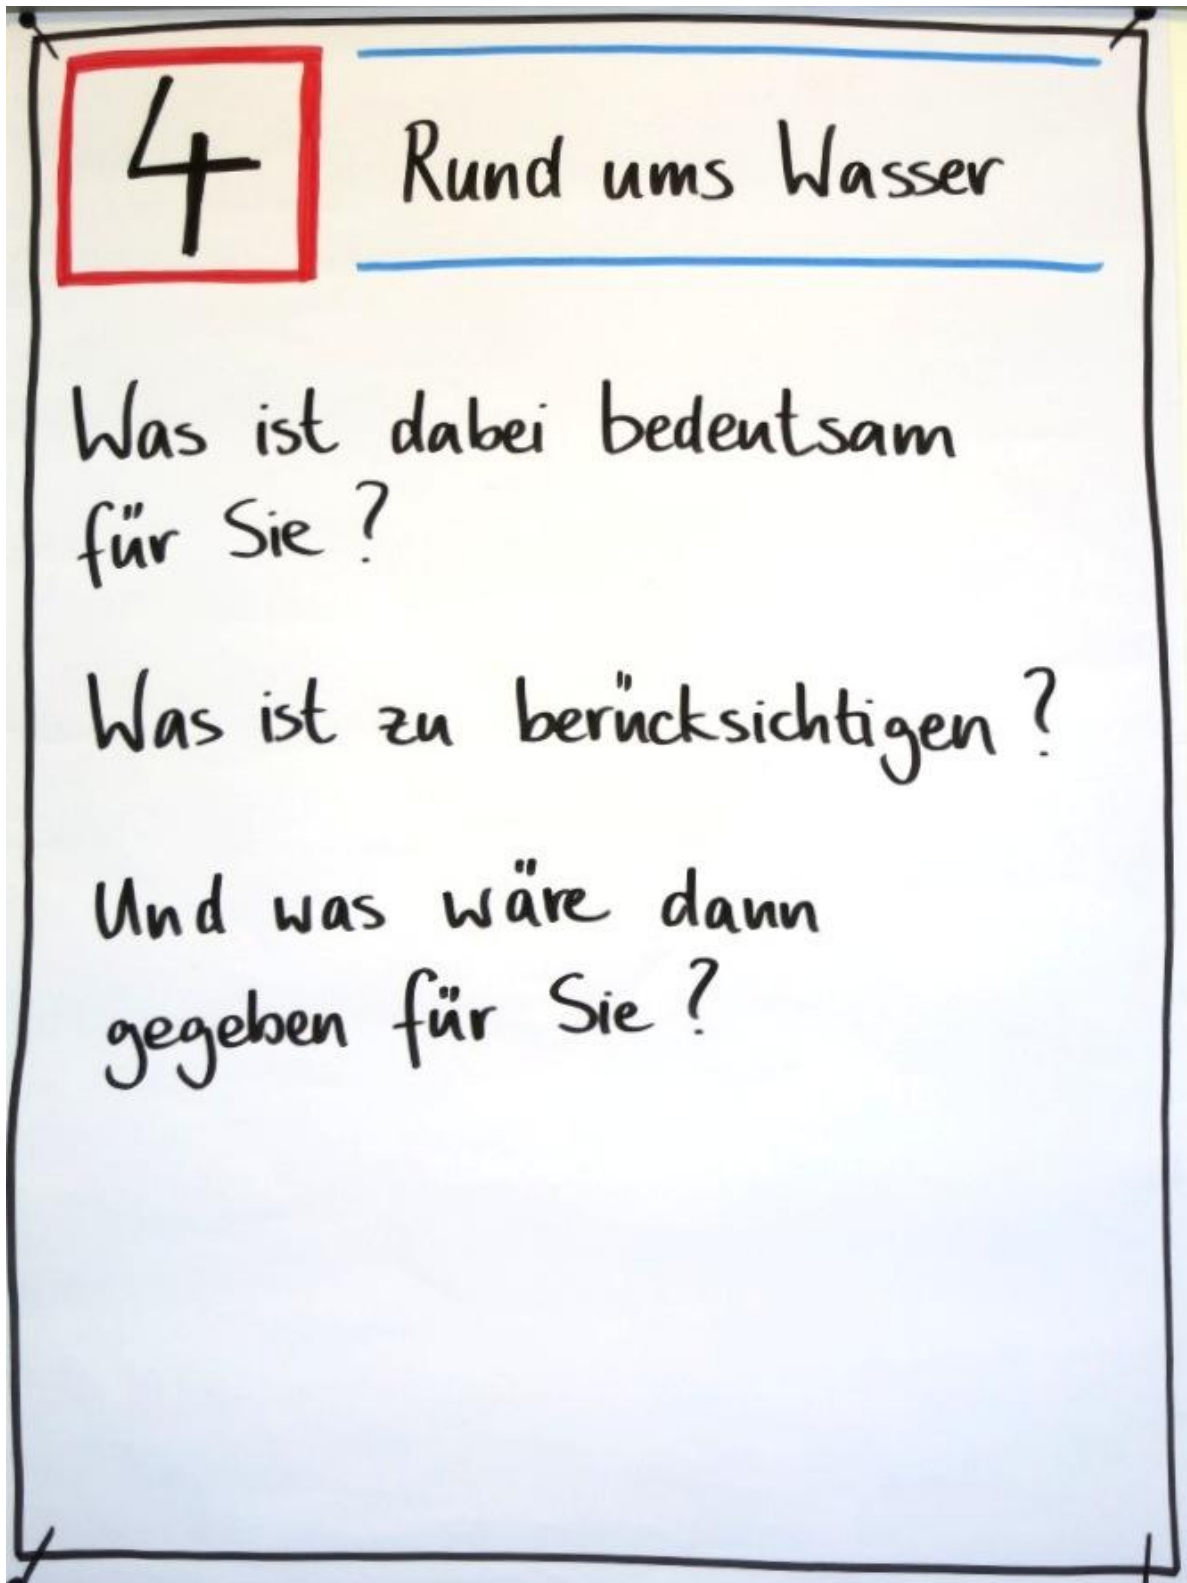 4
Rund ums Wasser
Was ist dabei bedeutsam
für Sie?
Was ist zu berücksichtigen?
Und was wäre dann
gegeben für Sie?